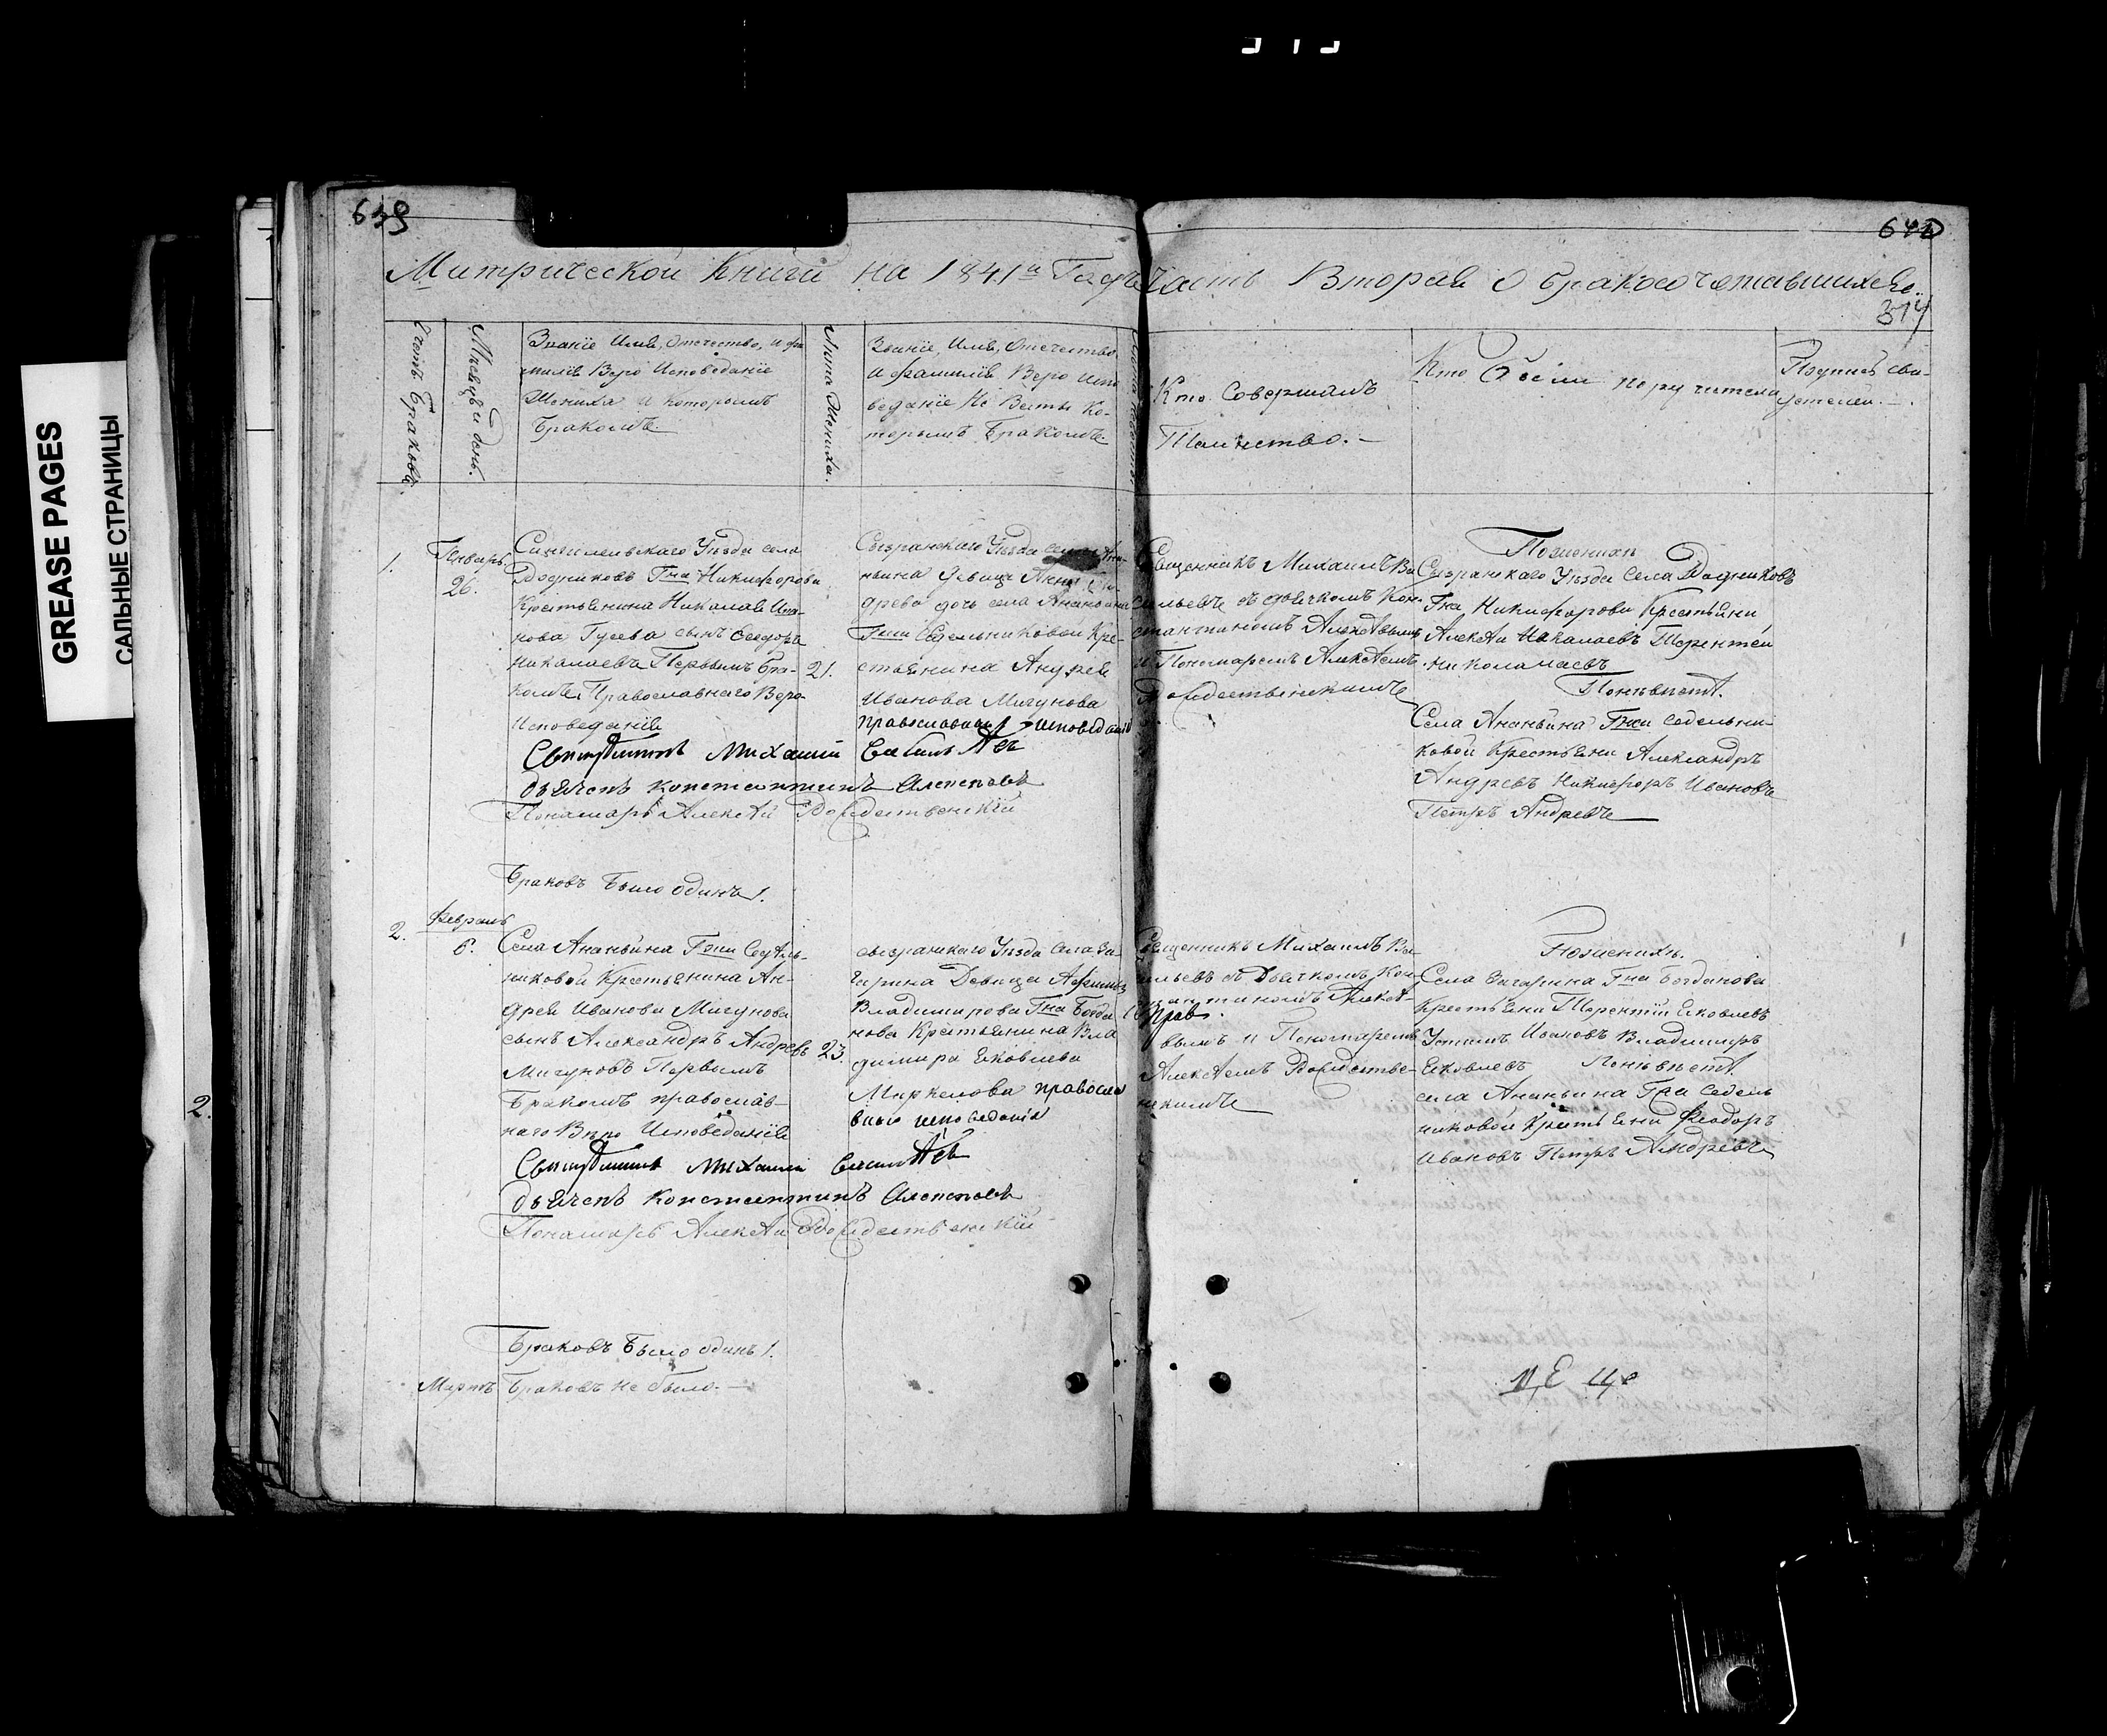 GREASE PAGES
САЛЬНЫЕ СТРАНИЦЫ
639
640
Митрической Книги на 1841й Годъ Часть Вторая О бракосочетавшихся.
314
Счетъ Браковъ.
Мѣсяцъ и день.
Званіе Имя, Отечество, и фа
милія Веро Исповеданіе
Жениха и которымъ
Бракомъ.
Лита Жениха.
Званіе, Имя, Отечество
и фамилія Веро испо
веданіе Не Весты Ко-
торымъ Бракомъ.
Кто Совершалъ
Таинство.
Кто Были поручители
Подпись сви-
детелей.
1.
Генварь
26.
Сингилеевскаго Уѣзда села
Гна Никифорова
Крестьянина Николая Ива-
нова Гусева сынъ Феодоръ
Николаевъ Первымъ бра-
комъ Православнаго Веро
Исповеданія
21.
Сызранскаго Уѣзда села Ана-
ньина девица Анна Ан-
древа дочь села Ананьина
Гжи Седельниковой Кре-
стьянина Андрея
Иванова Мигунова
православнаго исповеданія
Священникъ Михаилъ Ва
сильевъ съ дьячкомъ Кон-
стантиномъ
и Пономаремъ Алексѣемъ
Рождественскимъ
Пожених
Сызранскаго Уѣзда Села
Гна Никифорова Крестьяни
Алексѣй Николаевъ Терентей
Николаевъ
Поневѣстѣ.
Села Ананьина Гжи Седельни-
ковой Крестьяни Александръ
Андревъ Никифоръ Ивановъ
Петръ Андревъ
Священникъ Михаилъ Васильевъ
дьячекъ Константинъ
Пономарь Алексѣй Рождественскій
Браковъ Было одинъ 1.
2.
Февраль
6.
Села Ананьина Гжи Седѣль-
никовой Крестьянина Ан-
дрея Иванова Мигунова
сынъ Александръ Андревъ
Мигуновъ Первымъ
Бракомъ православ-
наго Веро Исповеданія
23.
сызранскаго Уѣзда Села За-
гарина Девица
Владимирова Гна Богда
нова Крестьянина Вла
димира Яковлева
православ
наго исповеданія
Священникъ Михаилъ Ва-
сильевъ съ Дьячкомъ Кон-
стантиномъ
вымъ и Пономаремъ
Алексѣемъ Рождестве-
нскимъ
Пожених.
Села Загарина Гна Богданова
Крестьяни Терентій Яковлевъ
Ивановъ Владимиръ
Яковлевъ Поневѣстѣ.
села Ананьина Гжи Седель
никовой Крестьяни Феодоръ
Ивановъ Петръ Андревъ
Священникъ Михаилъ Васильевъ
дьячекъ Константинъ
Пономарь Алексѣй Рождественскій
Браковъ Было одинъ 1.
Мартъ Браковъ не было.
2.